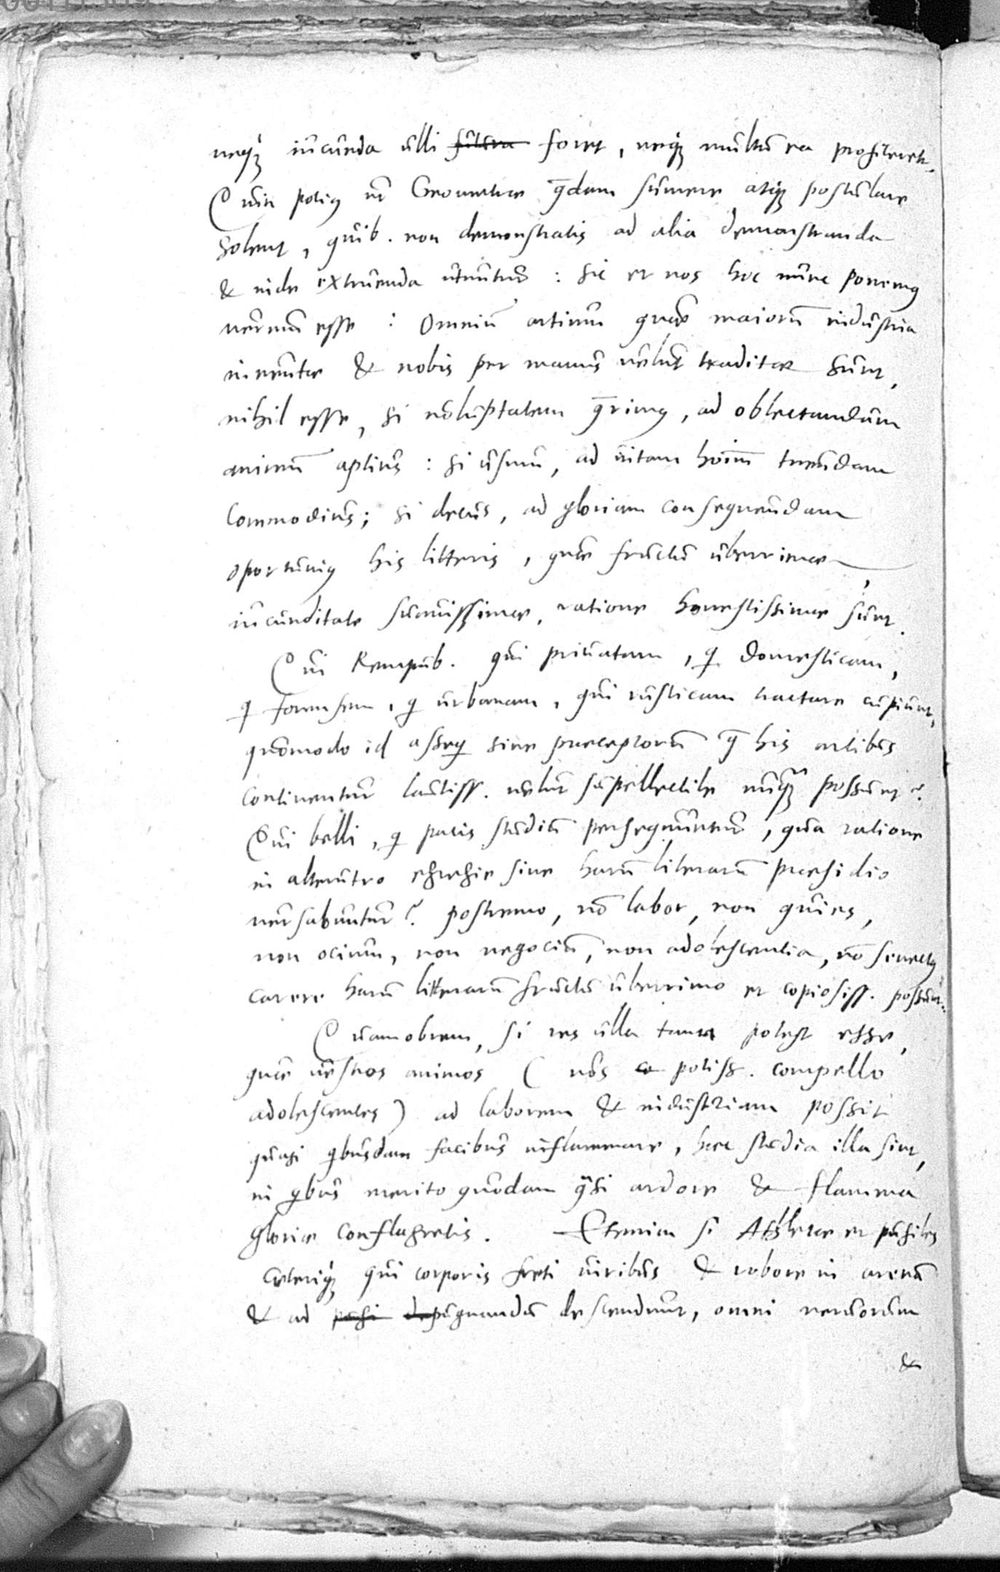 neq3 iucunda ulli futura foret, neq3 multū ea profiteretr.
Quin potiq ut Geometrae qdam sumere, atq3 postulare
solent, quib. non demonstratis ad alia demonstranda
& inde extruenda utuntur : sic et nos hoc nunc ponemq
verum esse : Omniū artium quae maiorū industria
inventae & nobis per manus velut traditae sunt,
nihil esse, si voluptatem qrimq, ad oblectandum
animū aptius : si usum, ad vitam hoīm tuendam
commodius; si decus, ad gloriam consequendam
oportuniq his litteris, quae fructu uberrimae,
iucunditate suavissimae, ratione honestissimae sunt.
Qui Rempub. qui privatam, q domesticam,
q forensem, q urbanam, qui rusticam tractare cupiunt,
quomodo id asseq sine praeceptorū q his artibus
continentur lautiss. velut supellectile unq possunt?
Qui belli, q pacis studiū persequuntur, qua ratione
in alterutro egregie sine harū literarū praesidio
versabuntur? postremo, nō labor, non quies,
non ocium, non negociū, non adolescentia, nō senectq
carere harū litterarū fructu uberrimo et copiosiss. possunt.
Quamobrem, si res ulla tanta potest esse,
quae vestros animos ( vos eē potiss. compello
adolescentes) ad laborem & industriam possit
quasi qbusdam facibus inflammare, haec studia illa sint,
in qbus merito quodam qsi ardore & flamma
gloriae conflagretis. Etenim si Athletae et pugiles
caeteriq3 qui corporis freti viribus & robore in arenā
& ad pugi depugnandū descendunt, omni nervorum
&